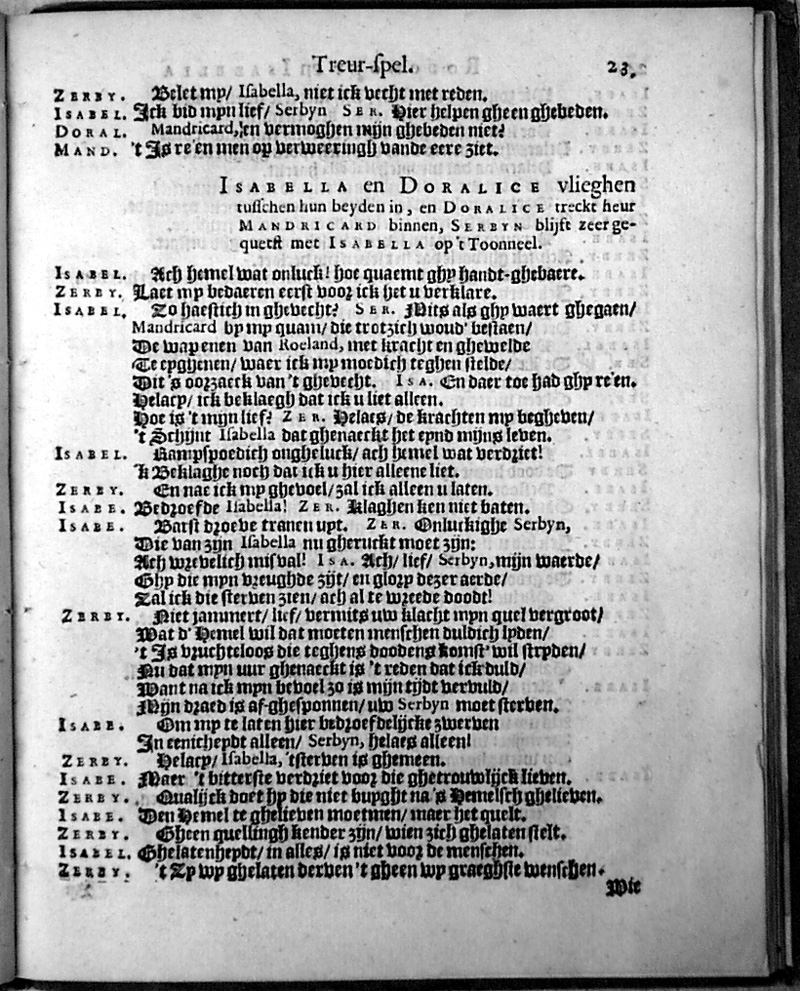 Treur-ſpel. 23.
ZERBY. Belet my/ Iſabella, niet ick vecht met reden.
ISABEL. Ick bid mijn lief/ Serbyn SER. Hier helpen gheen ghebeden.
DORAL. Mandricard, en vermoghen mijn ghebeden niet?
MAND. 't Is re'en men op verweeringh vande eere ziet.
ISABELLA en DORALICE vlieghen
tuſſchen hun beyden in, en DORALICE treckt heur
MANDRICARD binnen, SERBYN blijft zeer ge-
quetſt met ISABELLA op 't Toonneel.
ISABEL. Ach hemel wat onluck! hoe quaemt ghy handt-ghebaere.
ZERBY. Laet my bedaeren eerſt voor ick het u verklare.
ISABEL. Zo haeſtich in ghevecht? SER. Mits als ghy waert ghegaen/
Mandricard by my quam/ die trotzich woud' beſtaen/
De wapenen van Roeland, met kracht en ghewelde
Te eyghenen/ waer ick my moedich teghen ſtelde/
Dit's oorzaeck van 't ghevecht. ISA. En daer toe had ghy re'en.
Helacy/ ick beklaegh dat ick u liet alleen.
Hoe is 't mijn lief? ZER. Helaes/ de krachten my begheven/
't Schijnt Iſabella dat ghenaeckt het eynd mijns leven.
ISABEL. Rampſpoedich ongheluck/ ach hemel wat verdriet!
'k Beklaghe noch dat ick u hier alleene liet.
ZERBY. En nae ick my ghevoel/ zal ick alleen u laten.
ISABE. Bedroefde Iſabella! ZER. Klaghen ken niet baten.
ISABE. Barſt droeve tranen uyt. ZER. Onluckighe Serbyn,
Die van zijn Iſabella nu gheruckt moet zijn:
Ach wrevelich misval! ISA. Ach/ lief/ Serbyn, mijn waerde/
Ghy die mijn vreughde zijt/ en glory dezer aerde/
Zal ick die ſterven zien/ ach al te wreede doodt!
ZERBY. Niet jammert/ lief/ vermits uw klacht mijn quel vergroot/
Wat d' Hemel wil dat moeten menſchen duldich lyden/
't Is vruchteloos die teghens doodens komſt' wil ſtryden/
Nu dat mijn uur ghenaeckt is 't reden dat ick duld/
Want na ick mijn bevoel zo is mijn tijdt vervuld/
Mijn draed is af-gheſponnen/ uw Serbyn moet ſterven.
ISABE. Om my te laten hier bedroefdelijcke zwerven
In eenicheydt alleen/ Serbyn, helaes alleen!
ZERBY. Helacy/ Iſabella, 'tſterven is ghemeen.
ISABE. Maer 't bitterſte verdriet voor die ghetrouwlijck lieven.
ZERBY. Qualijck doet hy die niet buyght na 's Hemelſch ghelieven.
ISABE. Den Hemel te ghelieven moetmen/ maer het quelt.
ZERBY. Gheen quellingh kender zijn/ wien zich ghelaten ſtelt.
ISABEL. Ghelatenheydt/ in alles/ is niet voor de menſchen.
ZERBY. 't Zy wy ghelaten derven 't gheen wy graeghſte wenſchen.
Wie